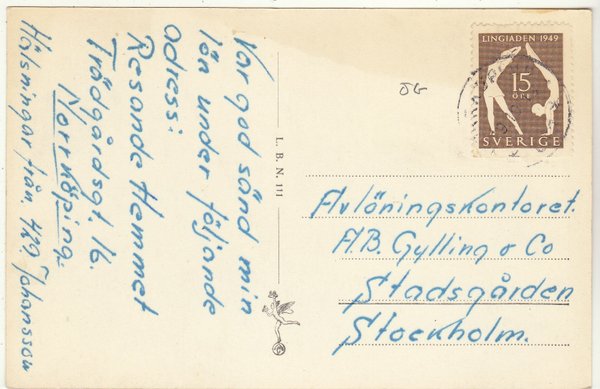 Var god sänd min
lön under följande
adress:
Resande Hemmet
Trädgårdsgt 16.
Norrköping.
Hälsningar från 429 Johansson
L. B. N. 111
JG
LINGIADEN 1949
15
ÖRE
SVERIGE
Avlöningskontoret.
AB. Gylling & Co
Stadsgården
Stockholm.